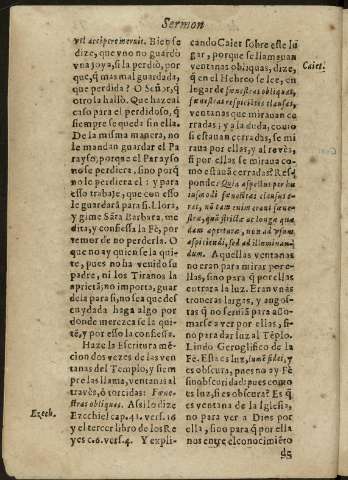 Sermon
vel accipere meruit. Bien se
dize, que vno no guardò
vna joya, si la perdiò, por
que, q̃ mas mal guardada,
que perdida? O Señor, q̃
otro la hallò. Que haze al
caso para el perdidoso, q̃
siempre se queda sin ella.
De la misma manera, no
le mandan guardar el Pa
rayso, porque el Parayso
no se perdiera, sino porq̃
no le perdiera el: y para
esso trabaje, que con esso
le guardarà para si. Llora,
y gime Sãta Barbara, me
dita, y confiessa la Fè, por
temor de no perderla. O
que no ay quien se la qui-
te, pues no ha venido su
padre, ni los Tiranos la
aprietã; no importa, guar
dela para si, no sea que des
cuydada haga algo por
donde merezca se la qui-
tẽ, y por esso la confiessa.
Haze la Escritura mẽ-
cion dos vezes de las ven
tanas del Templo, y siem
pre las llama, ventanas al
travès, ò torcidas: Fœne-
stras obliquas. Assi lo dize
Ezech.
Ezechiel cap. 41. vers. 16
y el tercer libro de los Re
yes c. 6. vers. 4. Y expli-
cando Caiet sobre este lu
gar, porque se llamauan
Caiet.
ventanas obliquas, dize,
q̃ en el Hebreo se lee, en
lugar de fœnestras obliquas,
fœnestras respicientes clausas,
ventanas que mirauan ce
rradas; y a la duda, como
si estauan cerradas, se mi
raua por ellas, y al revès,
si por ellas se miraua co-
mo estauã cerradas? Res
ponde: Quia aspectus per hu
iusmodi fœnestras clausus e-
rat, nã tam enim erant fœne-
stræ, quã strictæ ac longæ quæ
dam aperturæ, non ad vsum
aspiciendi, sed ad illuminan-
dum. Aquellas ventanas
no eran para mirar por e-
llas, sino para q̃ por ellas
entrara la luz. Eran vnas
troneras largas, y angos-
tas q̃ no seruiã para aso-
marse a ver por ellas, si-
no para dar luz al Tẽplo.
Lindo Geroglifico de la
Fè. Esta es luz, lumẽ fidei, y
es obscura, pues no ay Fè
sino obscuridad: pues como
es luz, si es obscura? Es q̃
es ventana de la Iglesia,
no para ver a Dios por
ella, sino para q̃ por ella
nos entre el conocimiẽto